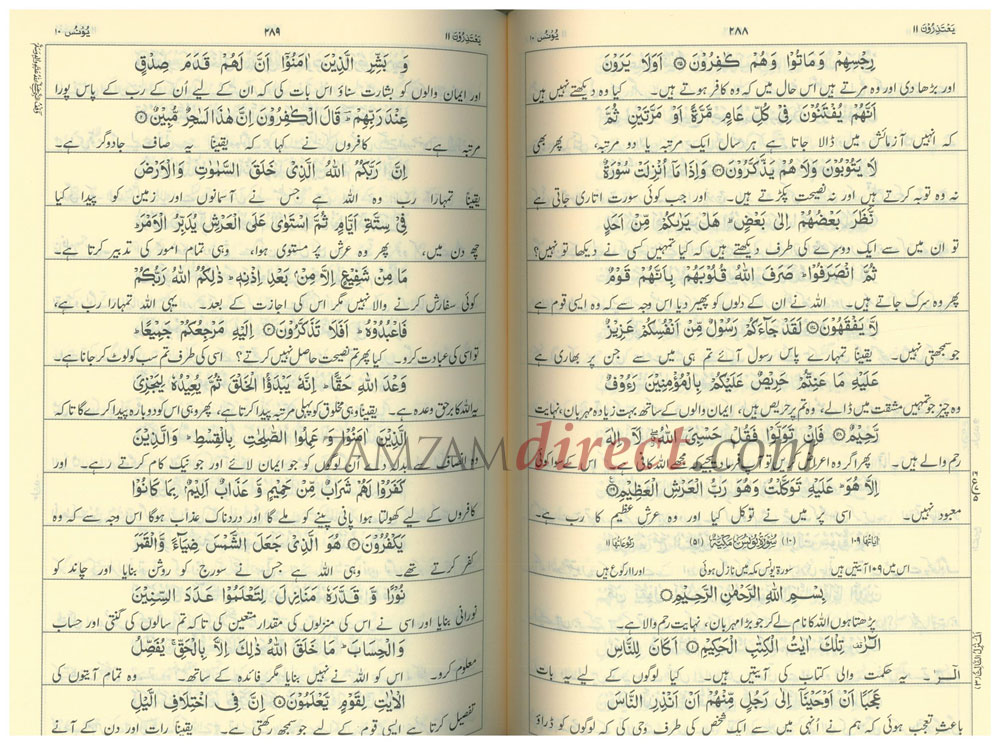 یَعْتَذِرُوْنَ ۱۱
۲۸۸
یُوْنُس ۱۰
رِجْسِهِمْ وَمَاتُوْا وَهُمْ كٰفِرُوْنَ اَوَلَا یَرَوْنَ
اور بڑھا دی اور وہ مرتے ہیں اس حال میں کہ وہ کافر ہوتے ہیں۔ کیا وہ دیکھتے نہیں ہیں
اَنَّهُمْ یُفْتَنُوْنَ فِیْ كُلِّ عَامٍ مَّرَّةً اَوْ مَرَّتَیْنِ ثُمَّ
کہ انہیں آزمائش میں ڈالا جاتا ہے ہر سال ایک مرتبہ یا دو مرتبہ، پھر بھی
لَا یَتُوْبُوْنَ وَلَا هُمْ یَذَّكَّرُوْنَ وَاِذَا مَاۤ اُنْزِلَتْ سُوْرَةٌ
نہ وہ توبہ کرتے ہیں اور نہ نصیحت پکڑتے ہیں۔ اور جب کوئی سورت اتاری جاتی ہے
نَّظَرَ بَعْضُهُمْ اِلٰی بَعْضٍ هَلْ یَرٰىكُمْ مِّنْ اَحَدٍ
تو ان میں سے ایک دوسرے کی طرف دیکھتے ہیں کہ کیا تمہیں کسی نے دیکھا تو نہیں؟
ثُمَّ انْصَرَفُوْا صَرَفَ اللّٰهُ قُلُوْبَهُمْ بِاَنَّهُمْ قَوْمٌ
پھر وہ سرک جاتے ہیں۔ اللہ نے ان کے دلوں کو پھیر دیا اس وجہ سے کہ وہ ایسی قوم ہے
لَّا یَفْقَهُوْنَ لَقَدْ جَآءَكُمْ رَسُوْلٌ مِّنْ اَنْفُسِكُمْ عَزِیْزٌ
جو سمجھتی نہیں۔ یقیناً تمہارے پاس رسول آئے تم ہی میں سے جن پر بھاری ہے
عَلَیْهِ مَا عَنِتُّمْ حَرِیْصٌ عَلَیْكُمْ بِالْمُؤْمِنِیْنَ رَءُوْفٌ
وہ چیز جو تمہیں مشقت میں ڈالے، وہ تم پر حریص ہیں، ایمان والوں کے ساتھ بہت زیادہ مہربان، نہایت
رَّحِیْمٌ فَاِنْ تَوَلَّوْا فَقُلْ حَسْبِیَ اللّٰهُ لَاۤ اِلٰهَ
رحم والے ہیں۔ پھر اگر وہ اعراض کریں تو آپ فرما دیجیے، مجھے اللہ کافی ہے۔ اس کے سوا کوئی
اِلَّا هُوَ عَلَیْهِ تَوَكَّلْتُ وَهُوَ رَبُّ الْعَرْشِ الْعَظِیْمِ
معبود نہیں۔ اسی پر میں نے توکل کیا اور وہ عرش عظیم کا رب ہے۔
اٰیَاتُهَا ۱۰۹ (۱۰) سُوْرَةُ یُوْنُسَ مَكِّیَّةٌ (۵۱) رُكُوْعَاتُهَا ۱۱
اس میں ۱۰۹ آیتیں ہیں سورۂ یونس مکہ میں نازل ہوئی اور ۱۱ رکوع ہیں
بِسْمِ اللّٰهِ الرَّحْمٰنِ الرَّحِیْمِ
پڑھتا ہوں اللہ کا نام لے کر جو بڑا مہربان، نہایت رحم والا ہے۔
الٓرٰ تِلْكَ اٰیٰتُ الْكِتٰبِ الْحَكِیْمِ اَكَانَ لِلنَّاسِ
الٓرٰ۔ یہ حکمت والی کتاب کی آیتیں ہیں۔ کیا لوگوں کے لیے یہ بات
عَجَبًا اَنْ اَوْحَیْنَاۤ اِلٰی رَجُلٍ مِّنْهُمْ اَنْ اَنْذِرِ النَّاسَ
باعث تعجب ہوئی کہ ہم نے اُنہی میں سے ایک شخص کی طرف وحی کی کہ لوگوں کو ڈراؤ
یَعْتَذِرُوْنَ ۱۱
۲۸۹
یُوْنُس ۱۰
وَ بَشِّرِ الَّذِیْنَ اٰمَنُوْۤا اَنَّ لَهُمْ قَدَمَ صِدْقٍ
اور ایمان والوں کو بشارت سناؤ اس بات کی کہ ان کے لیے اُن کے رب کے پاس پورا
عِنْدَ رَبِّهِمْ قَالَ الْكٰفِرُوْنَ اِنَّ هٰذَا لَسٰحِرٌ مُّبِیْنٌ
مرتبہ ہے۔ کافروں نے کہا کہ یقیناً یہ صاف جادوگر ہے۔
اِنَّ رَبَّكُمُ اللّٰهُ الَّذِیْ خَلَقَ السَّمٰوٰتِ وَالْاَرْضَ
یقیناً تمہارا رب وہ اللہ ہے جس نے آسمانوں اور زمین کو پیدا کیا
فِیْ سِتَّةِ اَیَّامٍ ثُمَّ اسْتَوٰی عَلَی الْعَرْشِ یُدَبِّرُ الْاَمْرَ
چھ دن میں، پھر وہ عرش پر مستوی ہوا، وہی تمام امور کی تدبیر کرتا ہے۔
مَا مِنْ شَفِیْعٍ اِلَّا مِنْۢ بَعْدِ اِذْنِهٖ ذٰلِكُمُ اللّٰهُ رَبُّكُمْ
کوئی سفارش کرنے والا نہیں مگر اس کی اجازت کے بعد۔ یہی اللہ تمہارا رب ہے،
فَاعْبُدُوْهُ اَفَلَا تَذَكَّرُوْنَ اِلَیْهِ مَرْجِعُكُمْ جَمِیْعًا
تو اسی کی عبادت کرو۔ کیا پھر تم نصیحت حاصل نہیں کرتے؟ اسی کی طرف تم سب کو لوٹ کر جانا ہے۔
وَعْدَ اللّٰهِ حَقًّا اِنَّهٗ یَبْدَؤُا الْخَلْقَ ثُمَّ یُعِیْدُهٗ لِیَجْزِیَ
یہ اللہ کا برحق وعدہ ہے۔ یقیناً وہی مخلوق کو پہلی مرتبہ پیدا کرتا ہے، پھر وہی اس کو دوبارہ پیدا کرے گا تا کہ
الَّذِیْنَ اٰمَنُوْا وَعَمِلُوا الصّٰلِحٰتِ بِالْقِسْطِ وَالَّذِیْنَ
وہ انصاف سے بدلہ دے اُن لوگوں کو جو ایمان لائے اور جو نیک کام کرتے رہے۔ اور
كَفَرُوْا لَهُمْ شَرَابٌ مِّنْ حَمِیْمٍ وَّ عَذَابٌ اَلِیْمٌۢ بِمَا كَانُوْا
کافروں کے لیے کھولتا ہوا پانی پینے کو ملے گا اور دردناک عذاب ہوگا اس وجہ سے کہ وہ
یَكْفُرُوْنَ هُوَ الَّذِیْ جَعَلَ الشَّمْسَ ضِیَآءً وَّالْقَمَرَ
کفر کرتے تھے۔ وہی اللہ ہے جس نے سورج کو روشن بنایا اور چاند کو
نُوْرًا وَّ قَدَّرَهٗ مَنَازِلَ لِتَعْلَمُوْا عَدَدَ السِّنِیْنَ
نورانی بنایا اور اسی نے اس کی منزلوں کی مقدار متعین کی تا کہ تم سالوں کی گنتی اور حساب
وَالْحِسَابَ مَا خَلَقَ اللّٰهُ ذٰلِكَ اِلَّا بِالْحَقِّ یُفَصِّلُ
معلوم کرو۔ اس کو اللہ نے نہیں بنایا مگر فائدہ کے ساتھ۔ وہ تمام آیتوں کی
الْاٰیٰتِ لِقَوْمٍ یَّعْلَمُوْنَ اِنَّ فِی اخْتِلَافِ الَّیْلِ
تفصیل کرتا ہے ایسی قوم کے لیے جو سمجھ رکھتی ہے۔ یقیناً رات اور دن کے آنے
ZAMZAMdirect.com